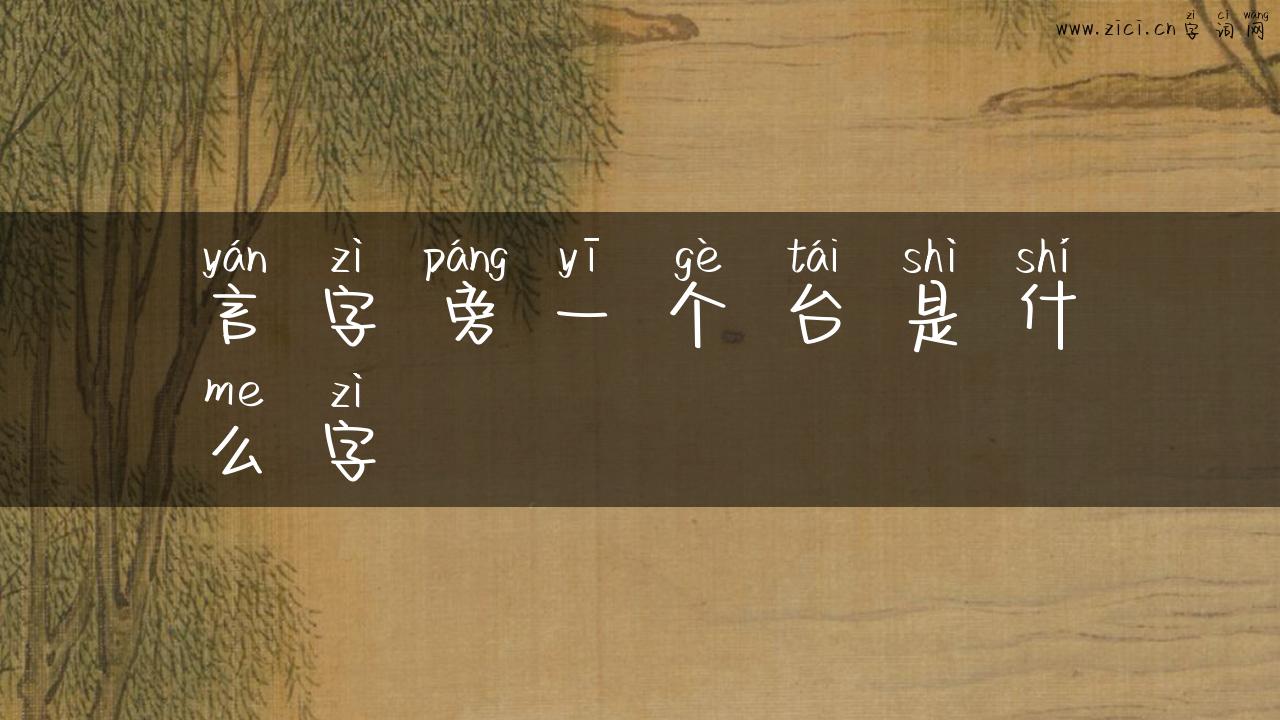 zì cí wǎng
www.zici.cn 字 词 网
yán zì páng yī gè tái shì shí
言 字 旁 一 个 台 是 什
me zì
么 字